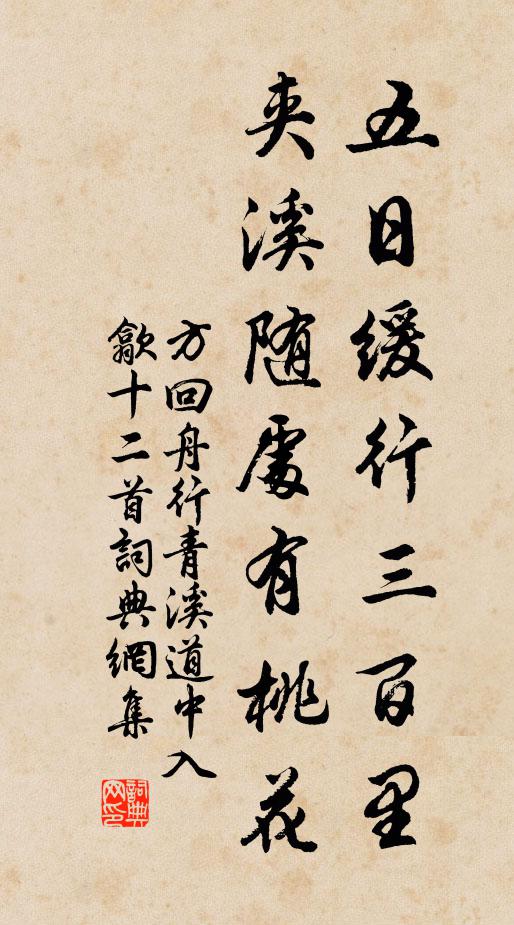 五日緩行三百里
夾溪随處有桃花
方回舟行青溪道中入
歙十二首詞典網集
詞典网印